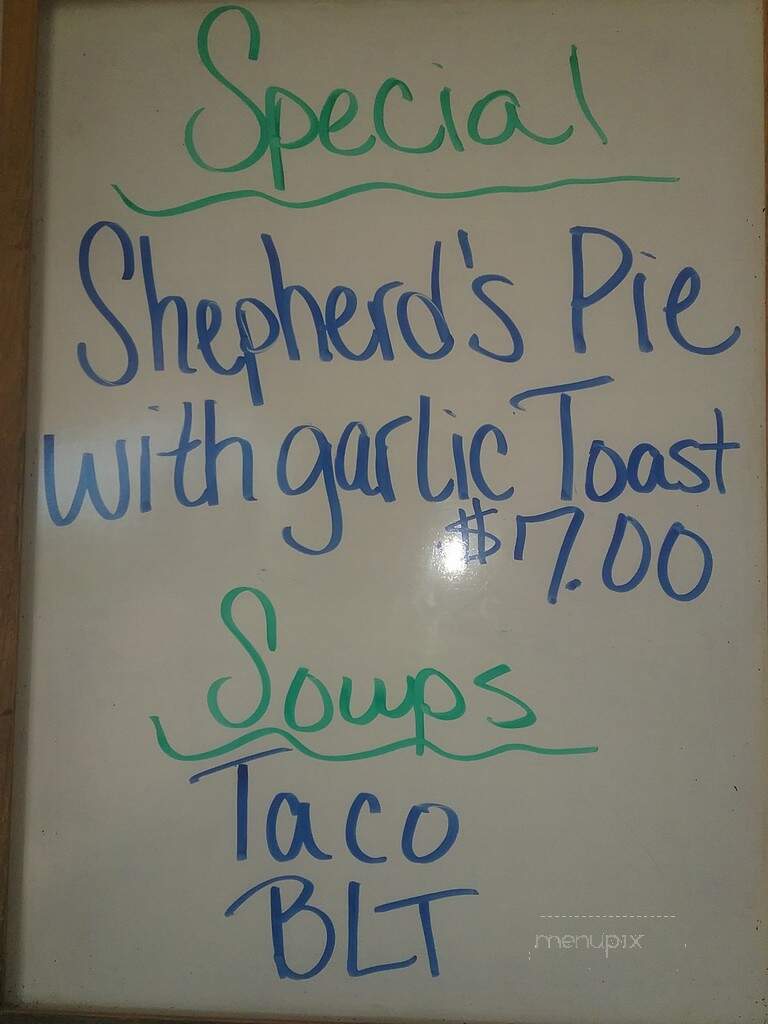 Special
Shepherd's Pie
with garlic Toast
$7.00
Soups
Taco
BLT
menupix